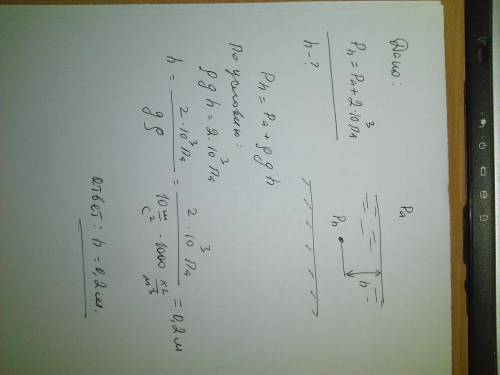 Дано:
Pₕ = Pₐ + 2·10³ Па
h - ?
Pₐ
h
Pₕ
Pₕ = Pₐ + ρgh
По условию:
ρgh = 2·10³ Па
h = 2·10³ Па / gρ = 2·10³ Па / 10 м/с² · 1000 кг/м³ = 0,2 м
Ответ: h = 0,2 м.